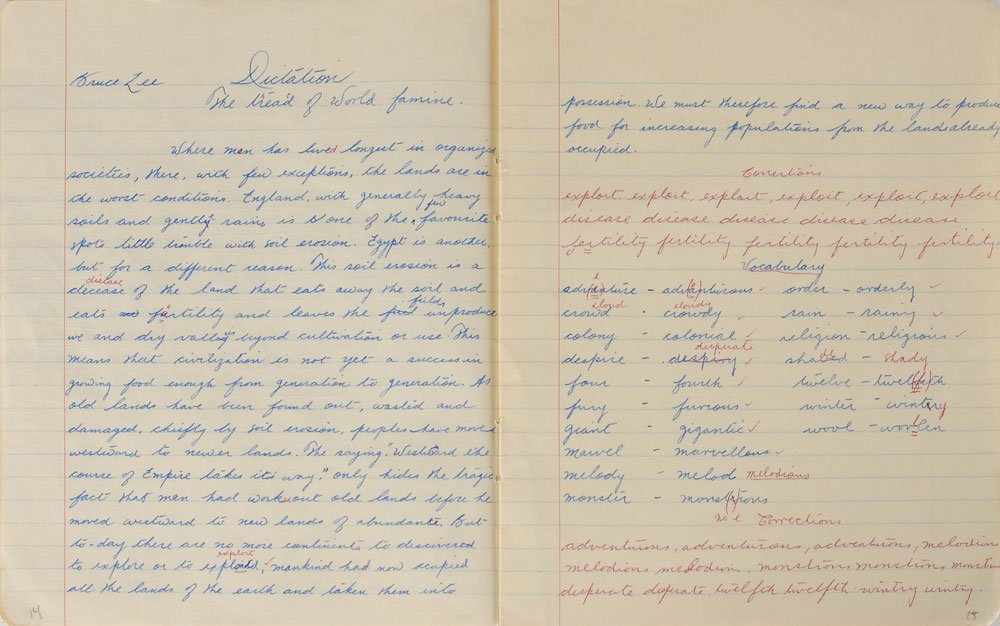 Bruce Lee
Dictation
The tread of World famine.
Where men has lived longest in organized
societies, there, with few exceptions, the lands are in
the worst conditions. England, with generally heavy
soils and gently rains, is one of the few favourite
spots little trouble with soil erosion. Egypt is another,
but for a different reason. This soil erosion is a
disease
decease of the land that eats away the soil and
fields
eats fertility and leaves the unproduce
we and dry valley beyond cultivation or use. This
means that civilization is not yet a success in
growing food enough from generation to generation. As
old lands have been found out, wasted and
damaged, chiefly by soil erosion, peoples have moved
westward to newer lands. The saying. "Westward the
course of Empire takes its way," only hides the tragic
fact that men had work out old lands before he
moved westward to new lands of abundante. But
to-day there are no more continents to discovered
exploit
to explore or to , mankind had now ocupied
all the lands of the earth and taken them into
14
possession. We must therefore find a new way to produce
food for increasing populations from the lands already
occupied.
Corrections
exploit. exploit, exploit, exploit, exploit, exploit
disease disease disease disease disease
fertility fertility fertility fertility fertility
Vocabulary
adventure - adventurous ✓ order - orderly ✓
cloud cloudy
crowd - crowdy ✓ rain - rainy ✓
colony - colonial ✓ religion - religious ✓
desperate
despire - despiry ✓ shade - shady
four - fourth ✓ twelve - twelfth
fury - furious ✓ winter - wintry
giant - gigantic ✓ wool - woollen
marvel - marvellous ✓
melody - melod melodious
monster - monstrous
no e Corrections
adventurous, adventurous, adventurous, melodious
melodious melodious. monstrous monstrous monstrous
desperate desperate. twelfth twelfth. wintry wintry.
15